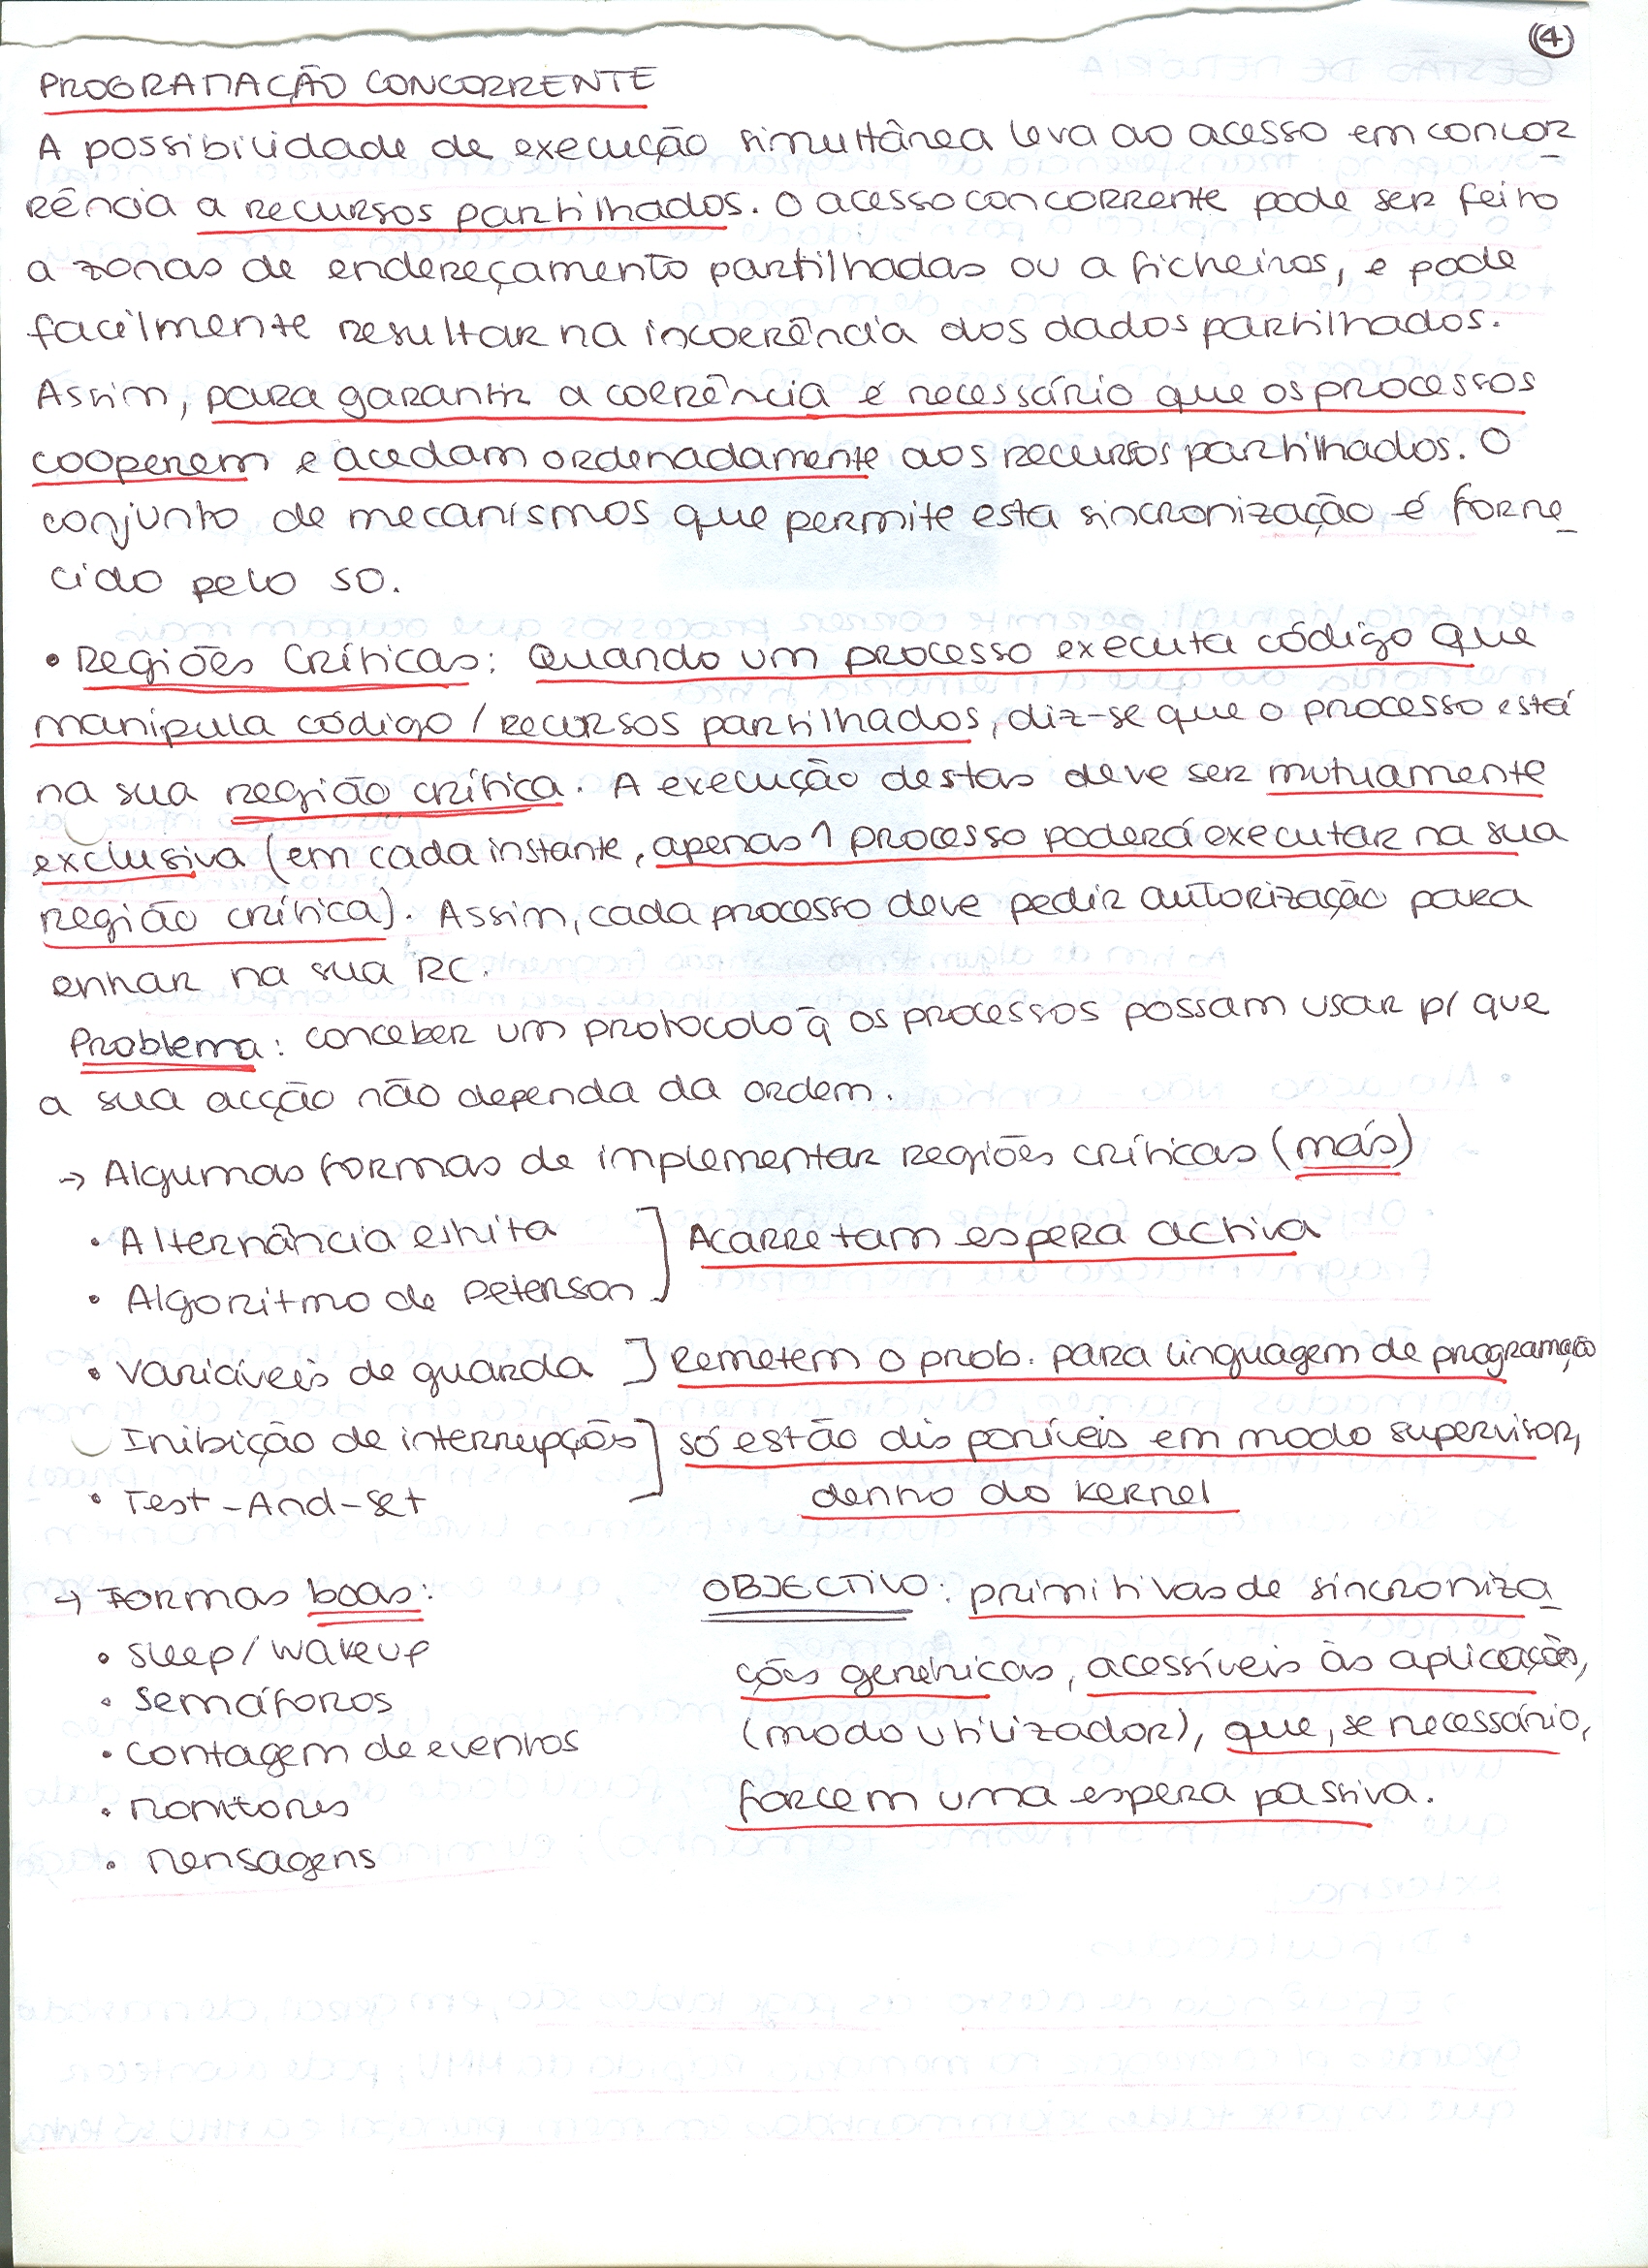 (4)
PROGRAMAÇÃO CONCORRENTE
A possibilidade de execução simultânea leva ao acesso em concor-
rência a recursos partilhados. O acesso concorrente pode ser feito
a zonas de endereçamento partilhadas ou a ficheiros, e pode
facilmente resultar na incoerência dos dados partilhados.
Assim, para garantir a coerência é necessário que os processos
cooperem e acedam ordenadamente aos recursos partilhados. O
conjunto de mecanismos que permite esta sincronização é forne-
cido pelo SO.
• Regiões Críticas: Quando um processo executa código que
manipula código / recursos partilhados, diz-se que o processo está
na sua região crítica. A execução destas deve ser mutuamente
exclusiva (em cada instante, apenas 1 processo poderá executar na sua
região crítica). Assim, cada processo deve pedir autorização para
entrar na sua RC.
Problema: conceber um protocolo q̃ os processos possam usar p/ que
a sua acção não dependa da ordem.
→ Algumas formas de implementar regiões críticas (más)
• Alternância estrita ] Acarretam espera activa
• Algoritmo de Peterson
• Variáveis de guarda ] Remetem o prob. para linguagem de programação
Inibição de interrupções ] só estão disponíveis em modo supervisor,
• Test-And-Set dentro do kernel
→ Formas boas:
• Sleep/Wakeup
• Semáforos
• Contagem de eventos
• Monitores
• Mensagens
OBJECTIVO: primitivas de sincroniza
ções genéricas, acessíveis às aplicações,
(modo utilizador), que, se necessário,
forcem uma espera passiva.